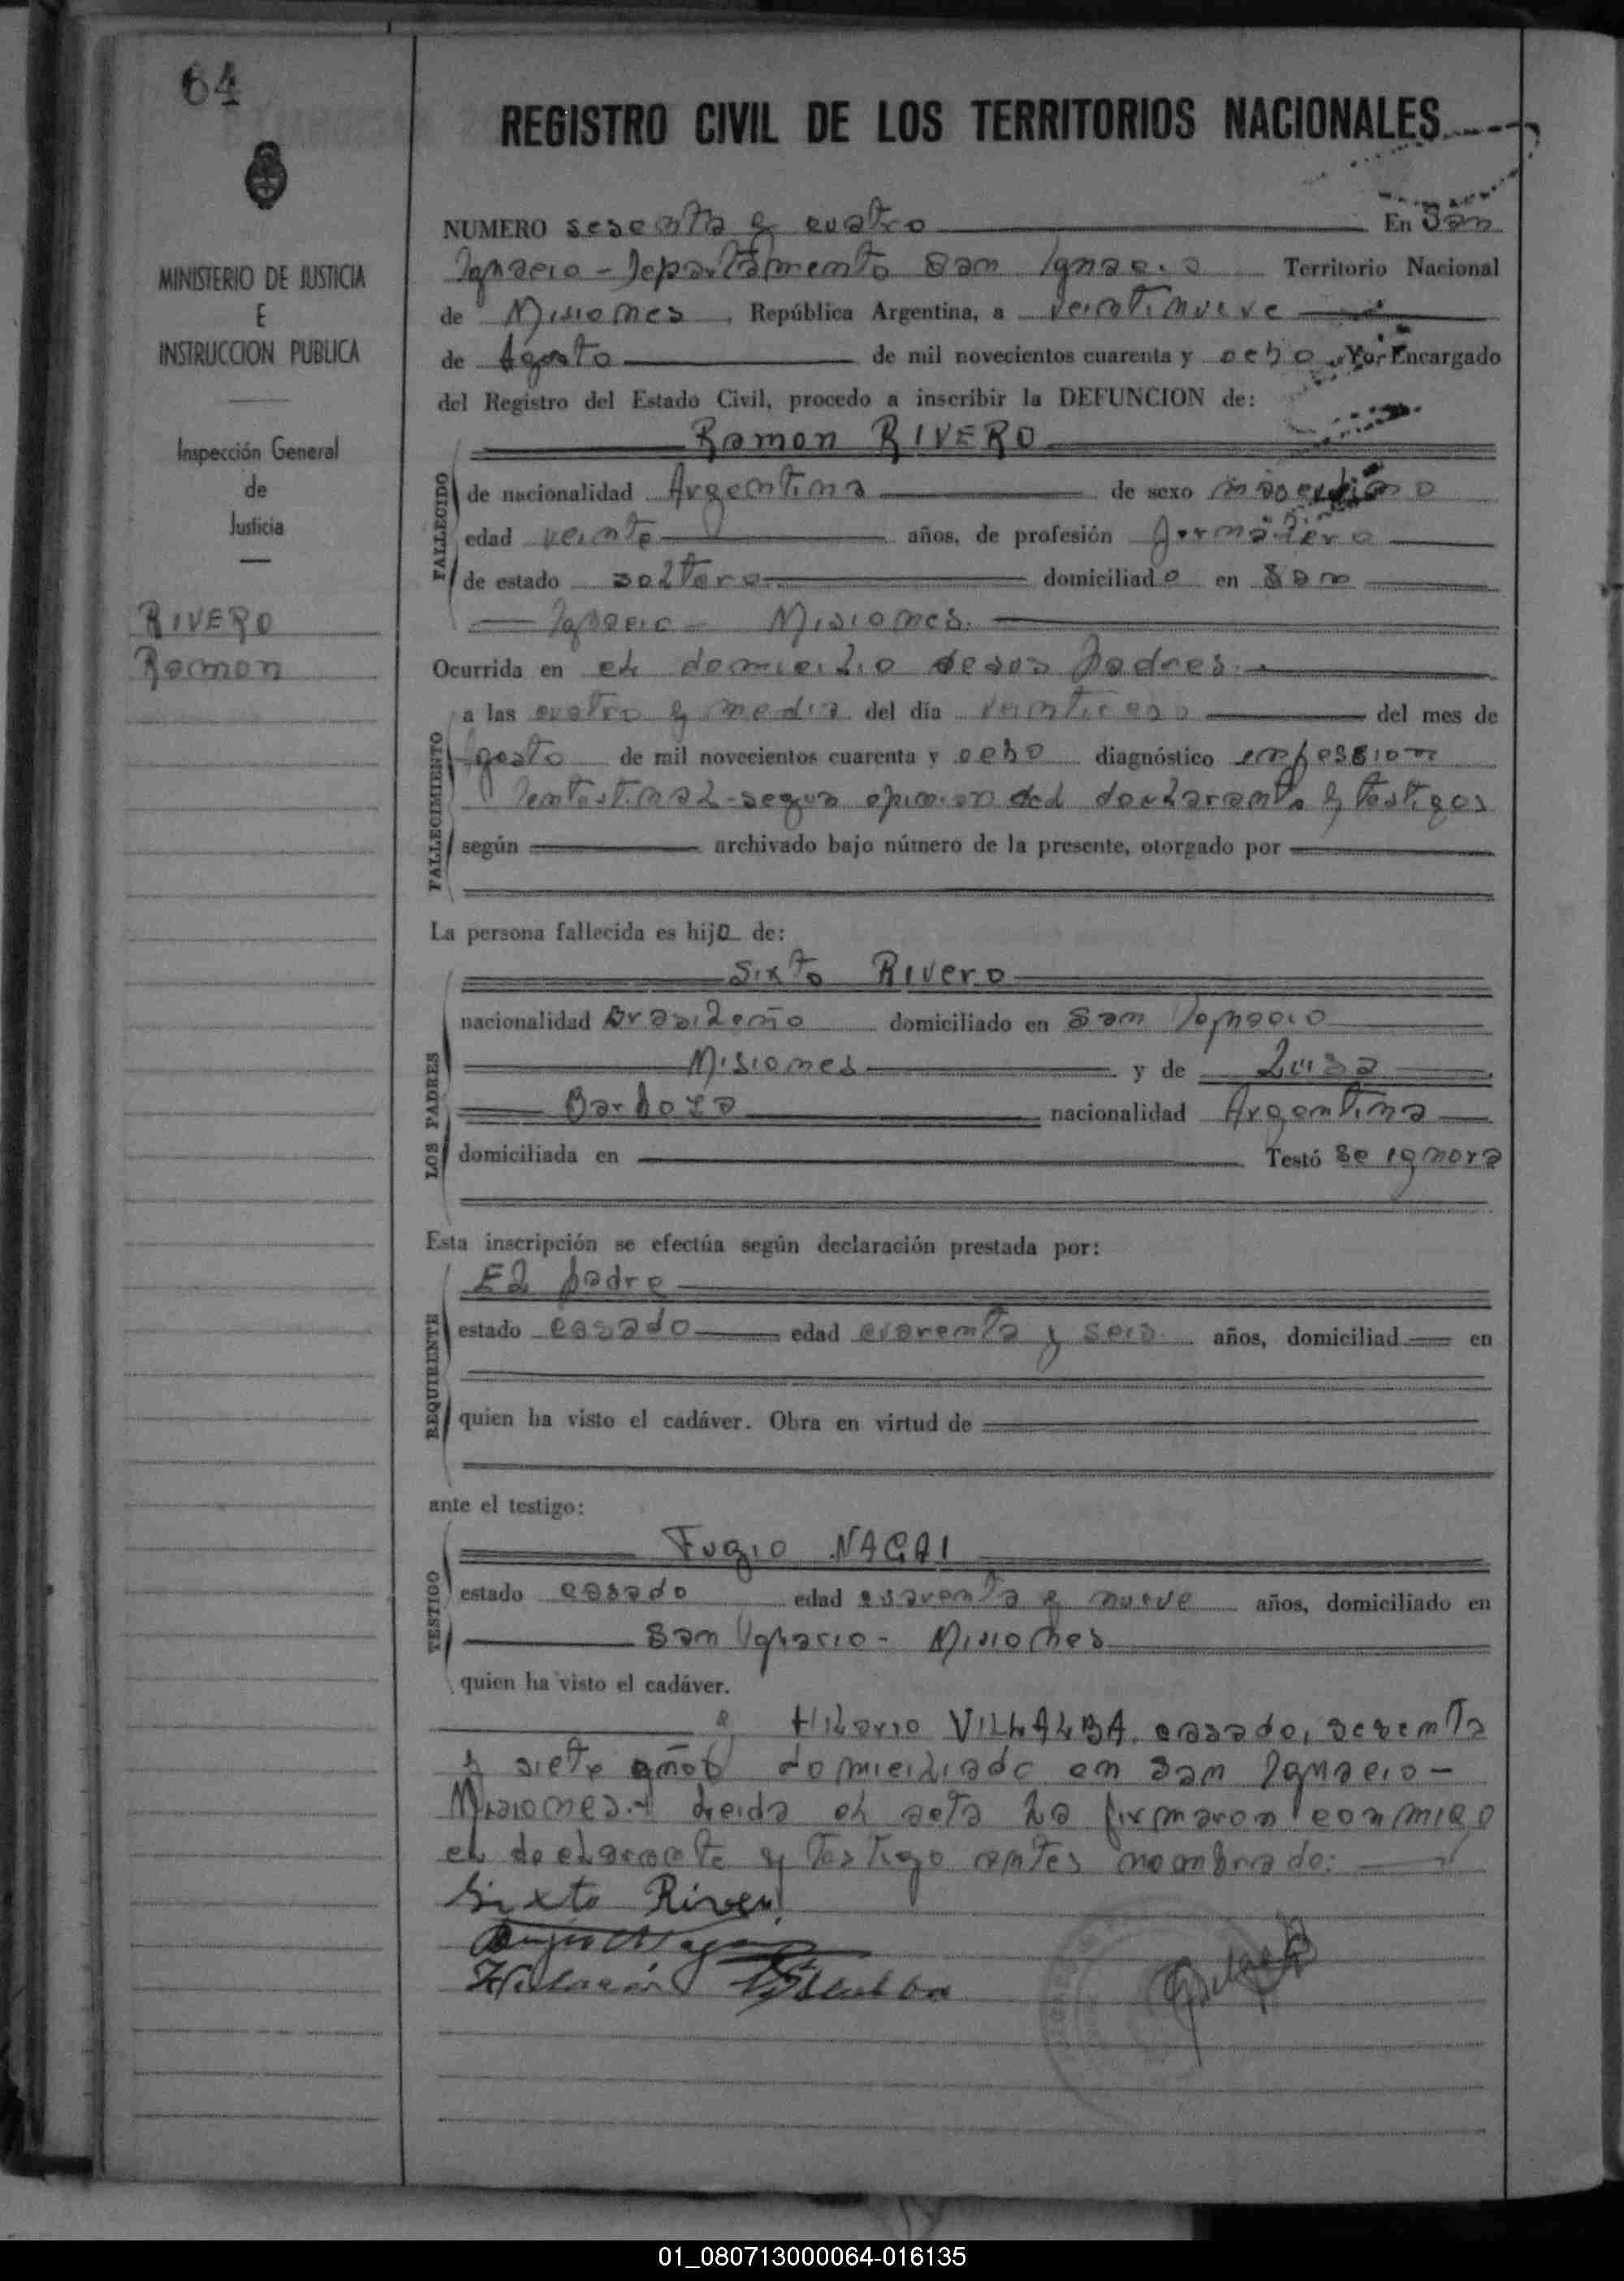 64
MINISTERIO DE JUSTICIA
E
INSTRUCCION PUBLICA
Inspección General
de
Justicia
RIVERO
Ramon
REGISTRO CIVIL DE LOS TERRITORIOS NACIONALES
NUMERO sesenta y cuatro En San
Ignacio - Departamento San Ignacio Territorio Nacional
de Misiones, República Argentina, a veintinueve
de Agosto de mil novecientos cuarenta y ocho Yo, Encargado
del Registro del Estado Civil, procedo a inscribir la DEFUNCION de:
Ramon RIVERO
FALLECIDO
de nacionalidad Argentina de sexo masculino
edad veinte años, de profesión Jornalero
de estado soltero domiciliado en San
Ignacio - Misiones.
Ocurrida en el domicilio de sus padres.
FALLECIMIENTO
a las cuatro y media del día del mes de
Agosto de mil novecientos cuarenta y ocho diagnóstico
- segun opinion del declarante y testigos
según archivado bajo número de la presente, otorgado por
La persona fallecida es hijo de:
LOS PADRES
Sixto Rivero
nacionalidad Brasileño domiciliado en San Ignacio
Misiones y de Luisa
Barboza nacionalidad Argentina
domiciliada en Testó se ignora
Esta inscripción se efectúa según declaración prestada por:
REQUIRENTE
El padre
estado casado edad cuarenta y seis años, domiciliad en
quien ha visto el cadáver. Obra en virtud de
ante el testigo:
TESTIGO
Fugio NAGAI
estado casado edad cuarenta y nueve años, domiciliado en
San Ignacio - Misiones
quien ha visto el cadáver.
y Hilario VILLALBA, casado, sesenta
y siete años domiciliado en San Ignacio -
Misiones. leida el acta la firmaron conmigo
el declarante y testigo antes nombrado:
Sixto Rivero
Hilario Villalba
01_080713000064-016135